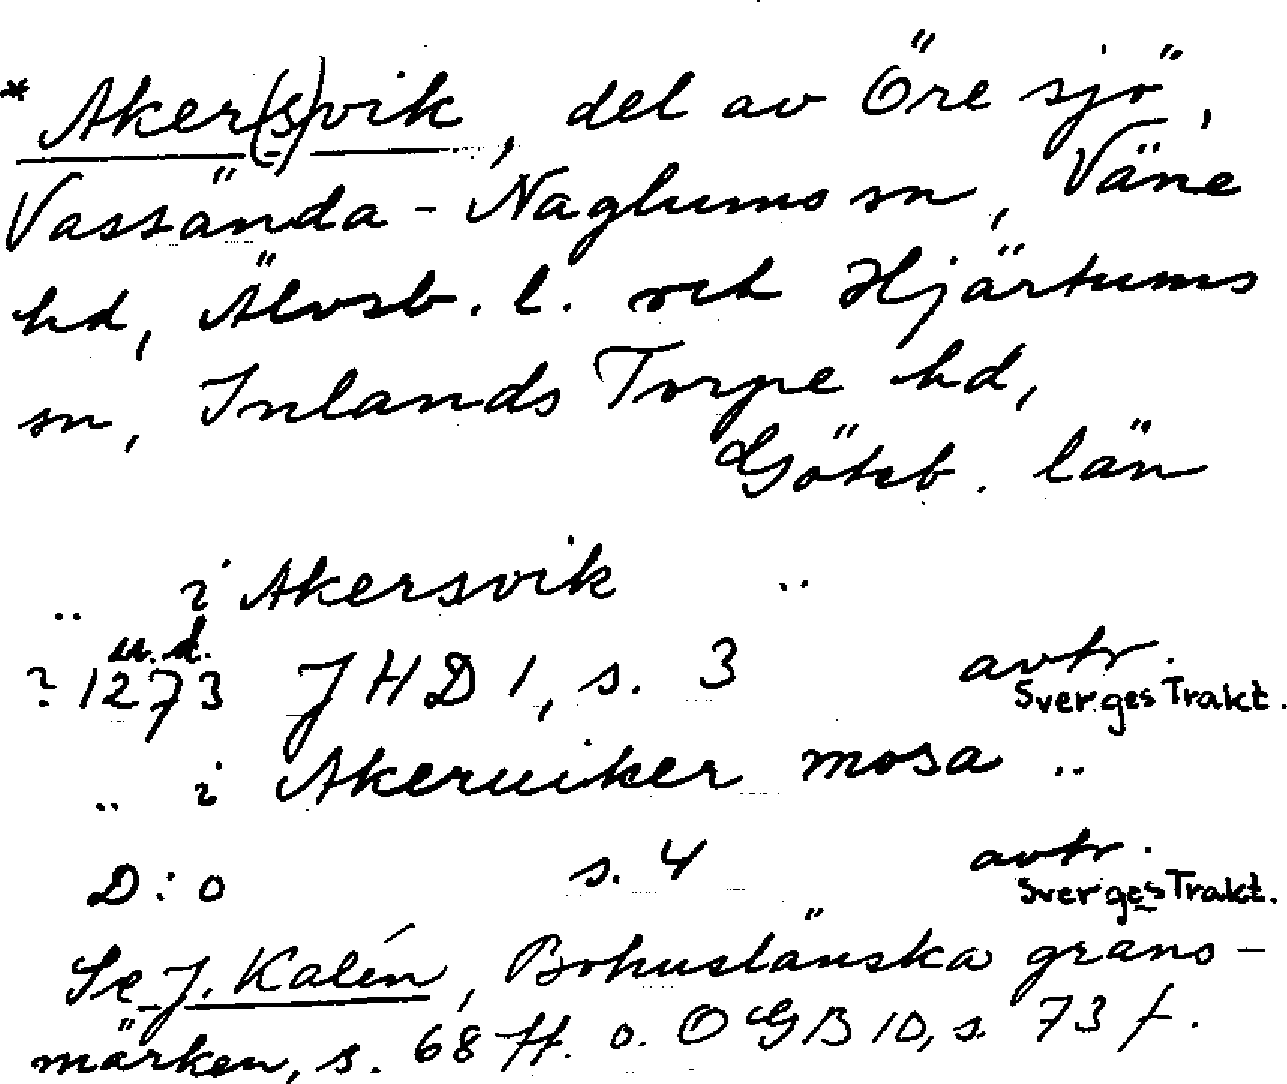 * Aker(s)vik, del av Öre sjö,
Vassända-Naglums sn, Väne
hd, Älvsb. l. och Hjärtums
sn, Inlands Torpe hd,
Göteb. län
.. i Akersvik ..
u.d.
? 1273 JHD 1, s. 3 avtr.
Sverges Trakt.
.. i Akeruiker mosa ..
D:o s. 4 avtr.
Sverges Trakt.
Se J. Kalén, Bohuslänska gräns-
märken, s. 68 ff. o. OGB 10, s. 73 f.